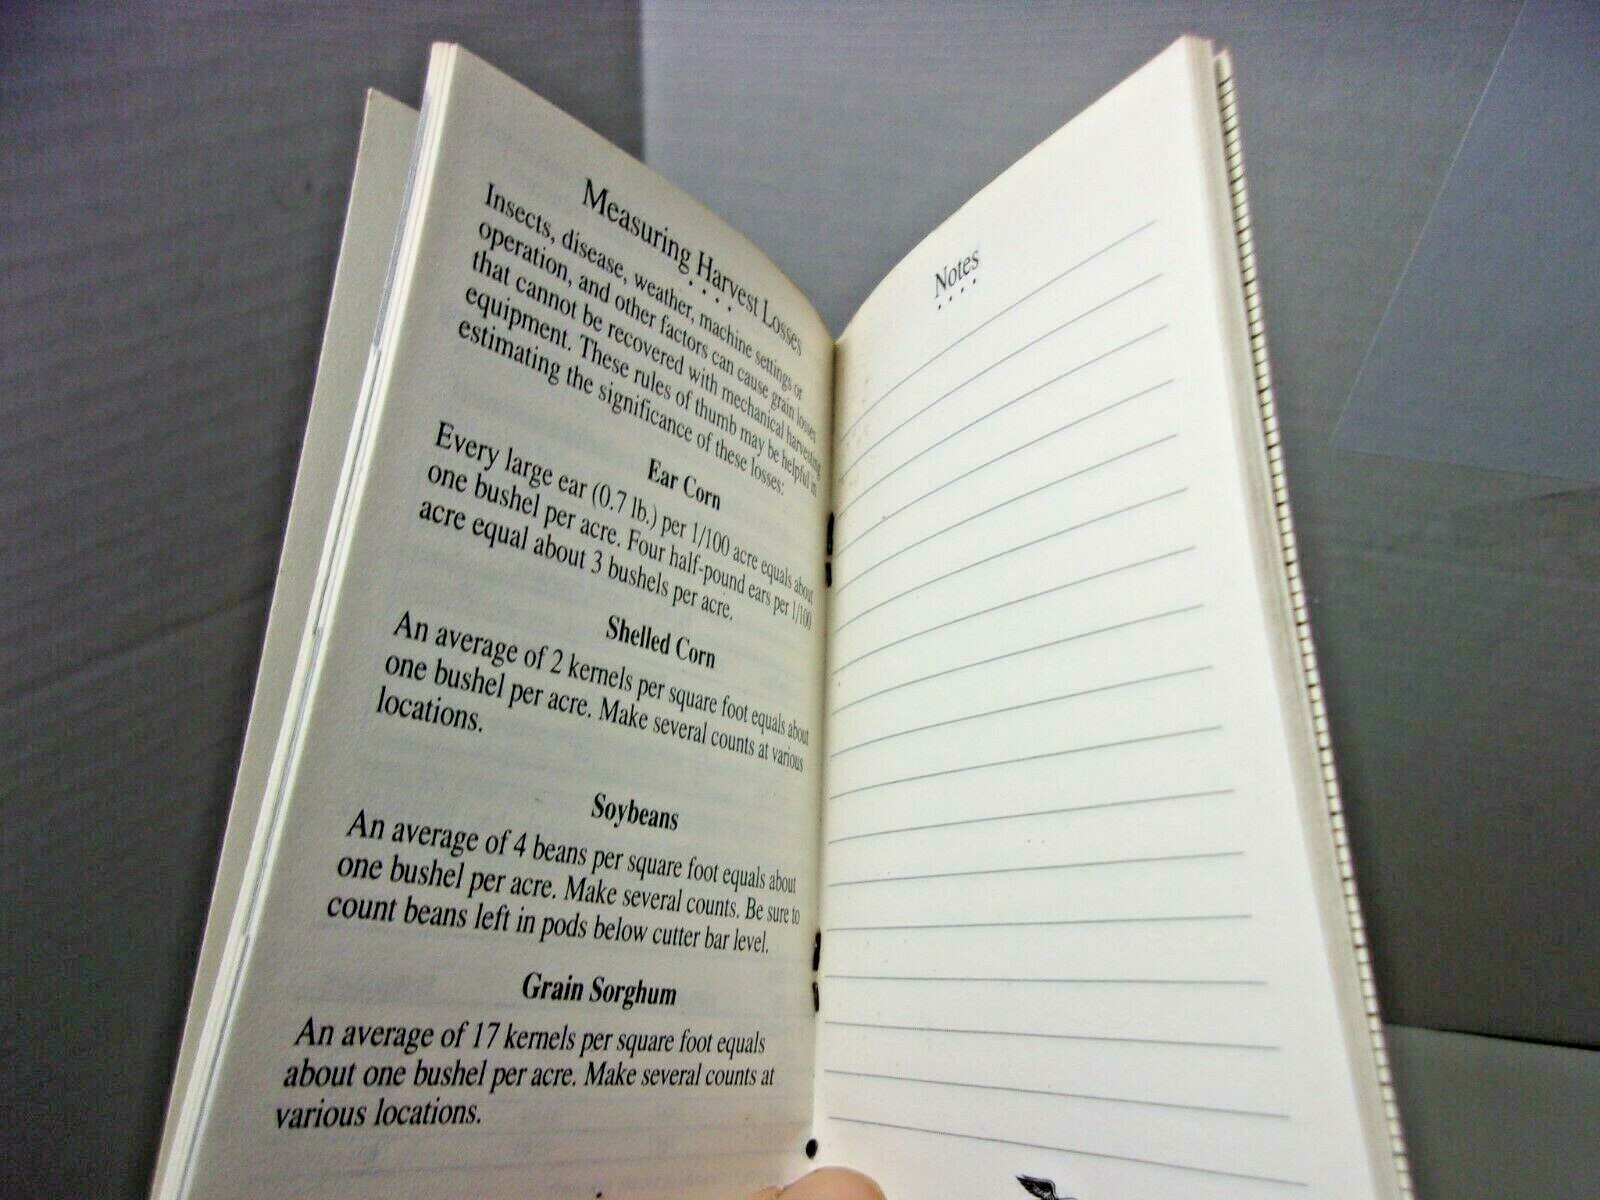 Measuring Harvest Losses
Insects, disease, weather, machine settings or
operation, and other factors can cause grain losses
that cannot be recovered with mechanical harvesting
equipment. These rules of thumb may be helpful in
estimating the significance of these losses:
Ear Corn
Every large ear (0.7 lb.) per 1/100 acre equals about
one bushel per acre. Four half-pound ears per 1/100
acre equal about 3 bushels per acre.
Shelled Corn
An average of 2 kernels per square foot equals about
one bushel per acre. Make several counts at various
locations.
Soybeans
An average of 4 beans per square foot equals about
one bushel per acre. Make several counts. Be sure to
count beans left in pods below cutter bar level.
Grain Sorghum
An average of 17 kernels per square foot equals
about one bushel per acre. Make several counts at
various locations.
Notes